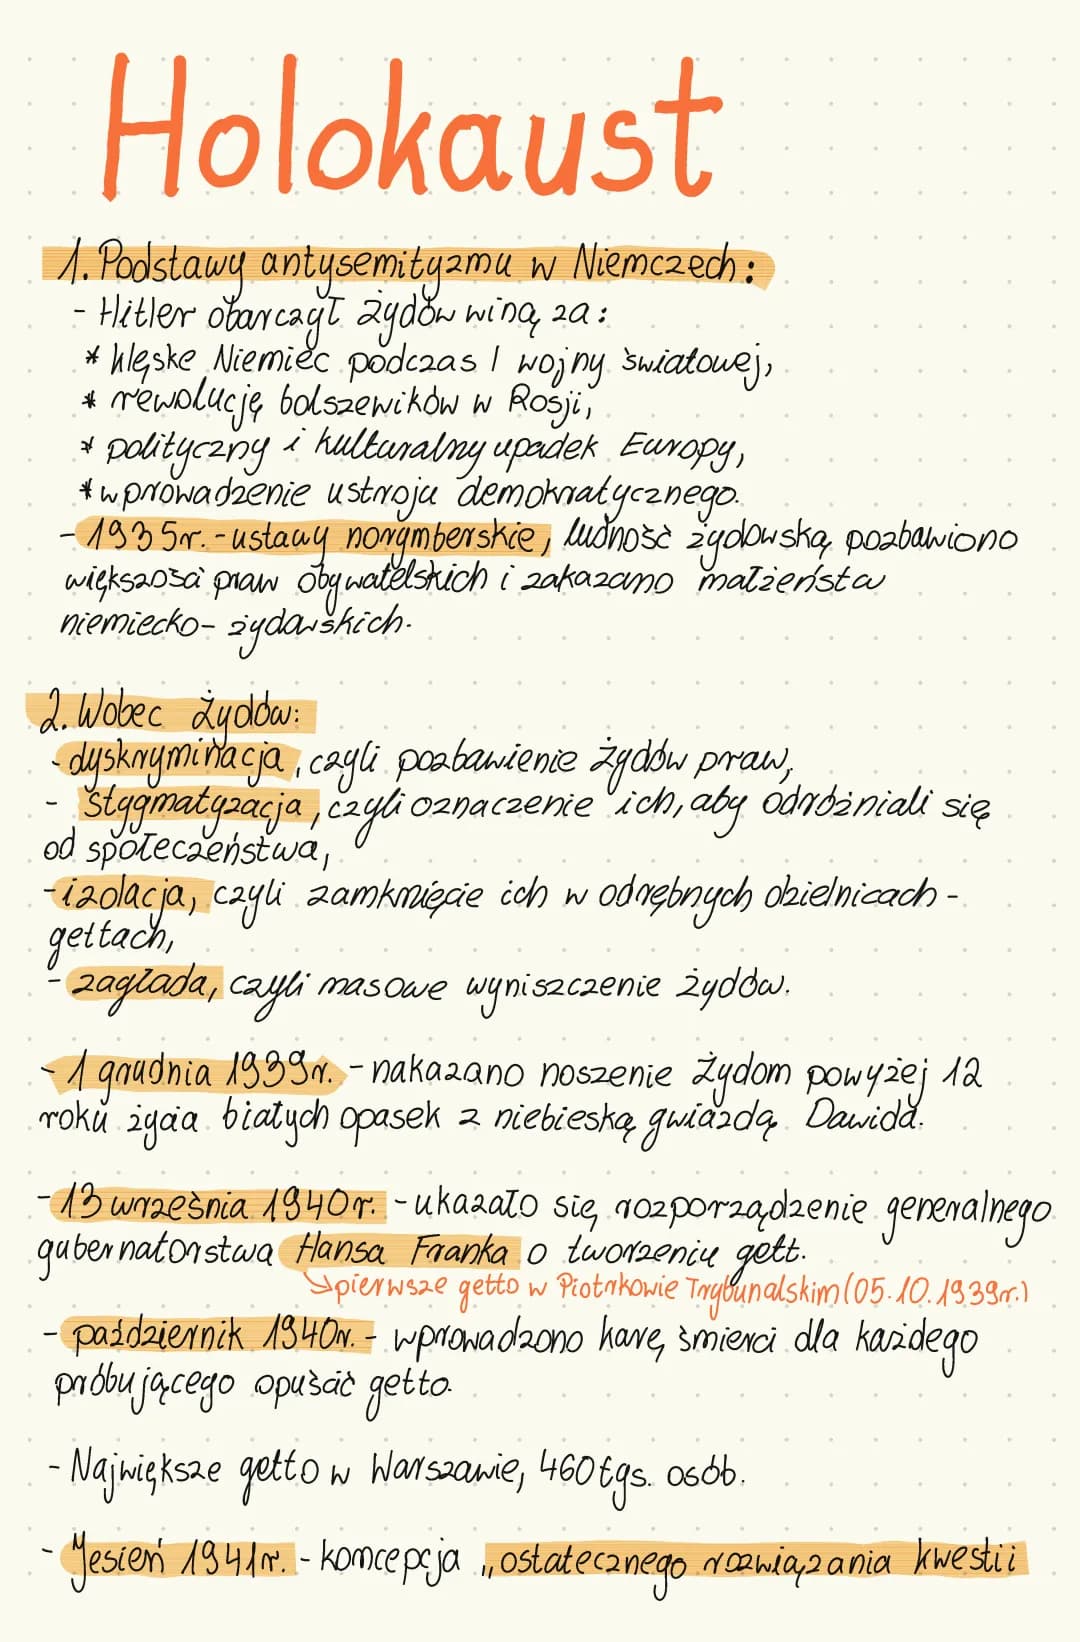 Holokaust
1. Podstawy antysemityzmu w Niemczech:
- Hitler obarczył żydów winą za:
* klęske Niemiec podczas I wojny światowej,
* rewolucję bolszewików w Rosji,
* polityczny i kulturalny upadek Europy,
* wprowadzenie ustroju demokratycznego.
- 1935r. - ustawy norymberskie, ludność żydowską pozbawiono
większości praw obywatelskich i zakazano małżeństw
niemiecko-żydowskich.
2. Wobec Żydów:
- dyskryminacja, czyli pozbawienie Żydów praw,
- stygmatyzacja, czyli oznaczenie ich, aby odróżniali się
od społeczeństwa,
- izolacja, czyli zamknięcie ich w odrębnych dzielnicach -
gettach,
- zagłada, czyli masowe wyniszczenie żydów.
- 1 grudnia 1939r. - nakazano noszenie Żydom powyżej 12
roku życia białych opasek z niebieską gwiazdą Dawida.
- 13 września 1940r. - ukazało się rozporządzenie generalnego
gubernatorstwa Hansa Franka o tworzeniu gett.
↳ pierwsze getto w Piotrkowie Trybunalskim (05.10.1939r.)
- październik 1940r. - wprowadzono karę śmierci dla każdego
próbującego opuścić getto.
- Największe getto w Warszawie, 460 tys. osób.
- Jesień 1941r. - koncepcja „ostatecznego rozwiązania kwestii